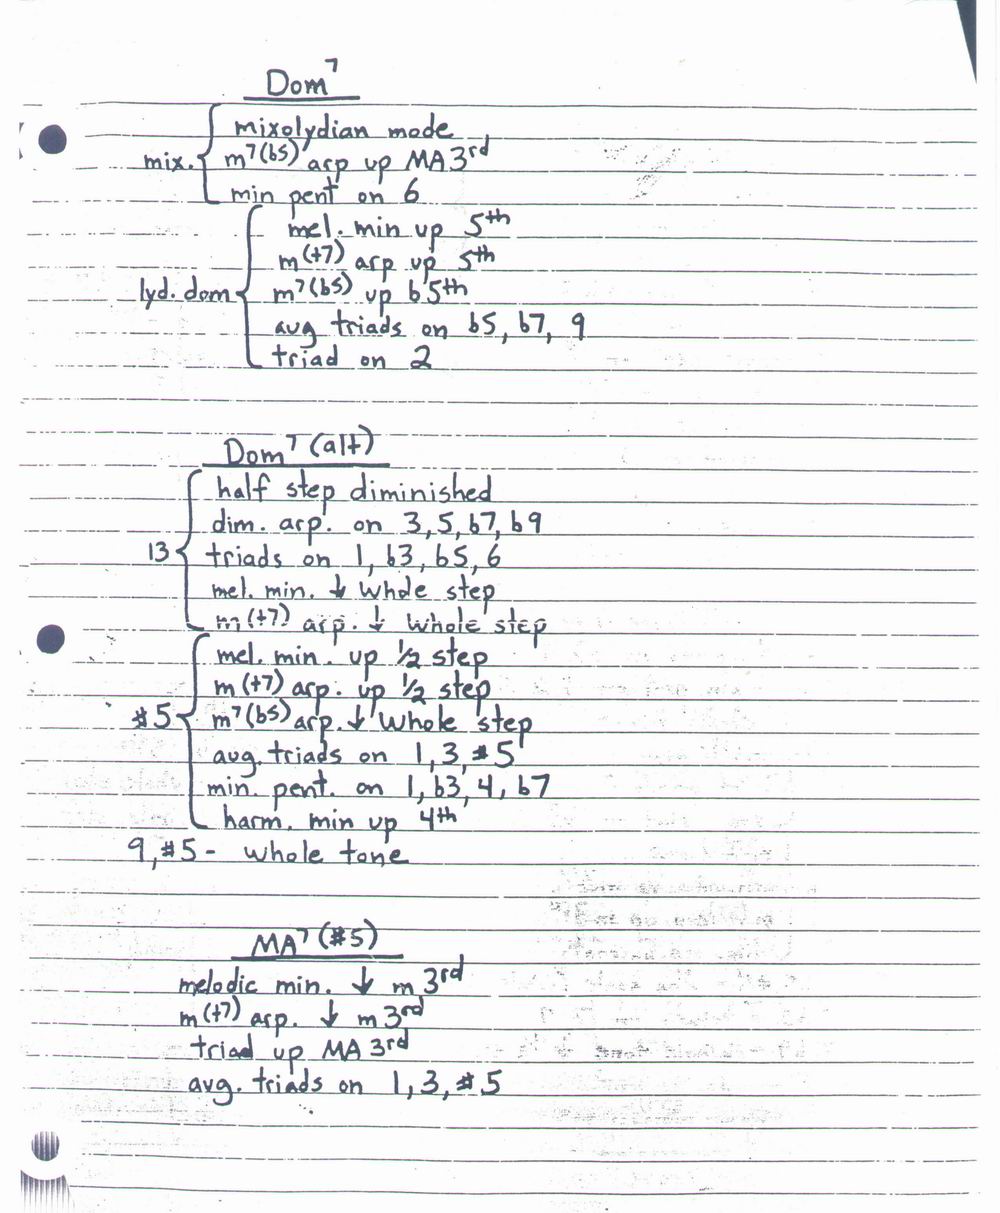 Dom7
mixolydian mode
mix. m7(b5) arp up MA 3rd
min pent on 6
mel. min up 5th
m(+7) arp up 5th
lyd. dom m7(b5) up b5th
aug triads on b5, b7, 9
triad on 2
Dom7 (alt)
half step diminished
dim. arp. on 3, 5, b7, b9
13 triads on 1, b3, b5, 6
mel. min. ↓ whole step
m(+7) arp. ↓ whole step
mel. min. up 1/2 step
m(+7) arp. up 1/2 step
#5 m7(b5) arp. ↓ whole step
aug. triads on 1, 3, #5
min. pent. on 1, b3, 4, b7
harm. min up 4th
9, #5 - whole tone
MA7 (#5)
melodic min. ↓ m 3rd
m(+7) arp. ↓ m 3rd
triad up MA 3rd
aug. triads on 1, 3, #5